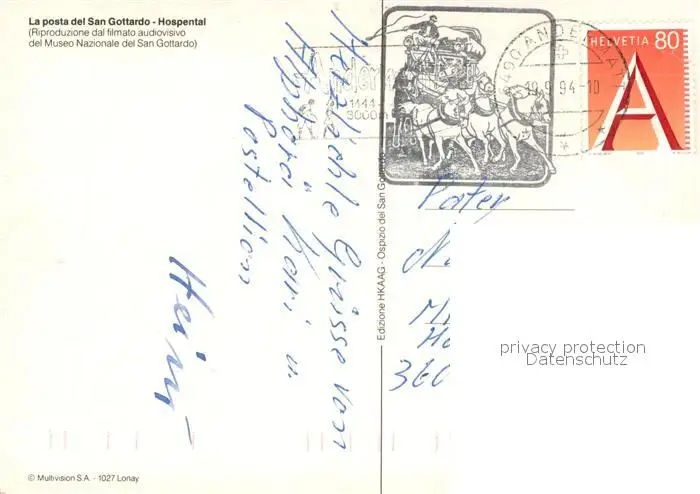 La posta del San Gottardo - Hospental
(Riproduzione dal filmato audiovisivo
del Museo Nazionale del San Gottardo)
HELVETIA 80
A
6490 ANDERMATT
19.9.94-10
Andermatt
1444
3000m
Herzliche Grüsse von
Kari u.
Postillion
Heini
Edizione HKAAG - Ospizio del San Gottardo
Pater
N
M
Ho
360
privacy protection
Datenschutz
© Multivision S.A. - 1027 Lonay